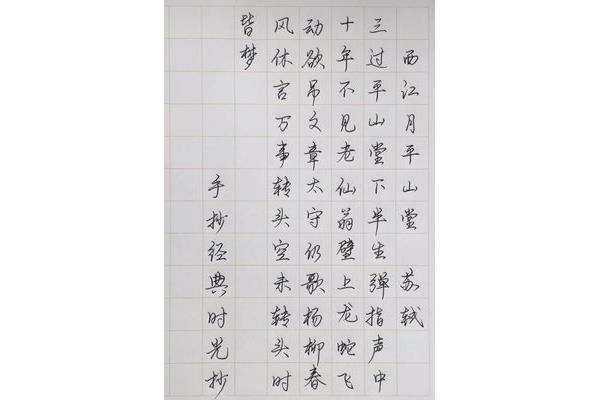 西江月平山堂 苏轼
三过平山堂下半生弹指声中
十年不见老仙翁壁上龙蛇飞
动欲吊文章太守仍歌杨柳春
风休言万事转头空未转头时
皆梦
手抄经典时光抄